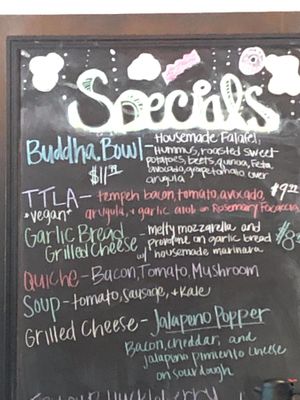 Specials
Buddha Bowl - Housemade Falafel,
Hummus, roasted sweet
potatoes, beets, quinoa, feta,
avocado, grape tomato over
arugula
$11.99
TTLA - tempeh bacon, tomato, avocado,
*vegan* arugula, & garlic aioli on Rosemary Focaccia
Garlic Bread - melty mozzarella and
Grilled Cheese provolone on garlic bread
w/ housemade marinara
Quiche - Bacon, Tomato, Mushroom
Soup - tomato, sausage, & kale
Grilled Cheese - Jalapeno Popper
Bacon, cheddar, and
jalapeno pimiento cheese
on sourdough